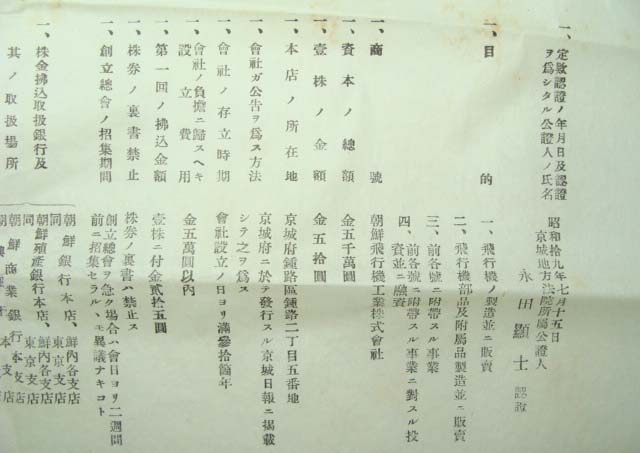 一、定款認證ノ年月日及認證
ヲ爲シタル公證人ノ氏名
昭和拾九年七月十五日
京城地方法院所屬公證人
永田顯士 認證
一、目的
一、飛行機ノ製造並ニ販賣
二、飛行機部品及附屬品製造並ニ販賣
三、前各號ニ附帶スル事業
四、前各號ニ附帶スル事業ニ對スル投
資並ニ融資
一、商號
朝鮮飛行機工業株式會社
一、資本ノ總額
金五千萬圓
一、壹株ノ金額
金五拾圓
一、本店ノ所在地
京城府鍾路區鍾路二丁目五番地
一、會社ガ公告ヲ爲ス方法
京城府ニ於テ發行スル京城日報ニ揭載
シテ之ヲ爲ス
一、會社ノ存立時期
會社設立ノ日ヨリ滿參拾箇年
一、會社ノ負擔ニ歸スヘキ
設立費用
金五萬圓以內
一、第一回ノ拂込金額
壹株ニ付金貳拾五圓
一、株券ノ裏書禁止
株券ノ裏書ハ禁止ス
一、創立總會ノ招集期間
創立總會ヲ急ク場合ハ會日ヨリ二週間
前ニ招集セラルヽモ異議ナキコト
一、株金拂込取扱銀行及
其ノ取扱場所
朝鮮銀行本店、鮮內各支店
同 東京支店
朝鮮殖產銀行本店、鮮內各支店
同 東京支店
朝鮮商業銀行本支店